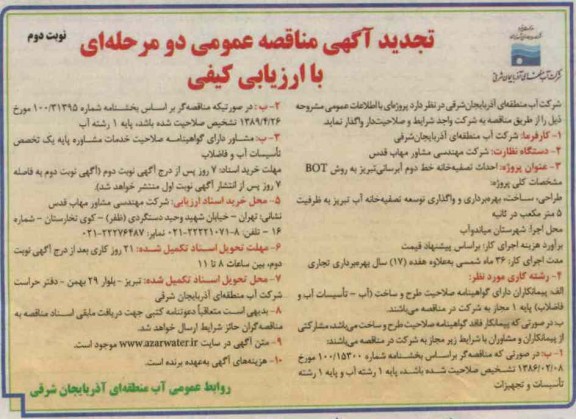 نوبت دوم
تجدید آگهی مناقصه عمومی دو مرحله‌ای
با ارزیابی کیفی
شرکت آب منطقه‌ای آذربایجان شرقی
شرکت آب منطقه‌ای آذربایجان‌شرقی در نظر دارد پروژه‌ای با اطلاعات عمومی مشروحه
ذیل را از طریق مناقصه به شرکت واجد شرایط و صلاحیت‌دار واگذار نماید.
۱- کارفرما: شرکت آب منطقه‌ای آذربایجان‌شرقی
۲- دستگاه نظارت: شرکت مهندسی مشاور مهاب قدس
۳- عنوان پروژه: احداث تصفیه‌خانه خط دوم آبرسانی تبریز به روش BOT
مشخصات کلی پروژه:
طراحی، ساخت، بهره‌برداری و واگذاری توسعه تصفیه‌خانه آب تبریز به ظرفیت
۵ متر مکعب در ثانیه
محل اجرا: شهرستان میاندوآب
برآورد هزینه اجرای کار: براساس پیشنهاد قیمت
مدت اجرای کار: ۳۶ ماه شمسی به‌علاوه هفده (۱۷) سال بهره‌برداری تجاری
۴- رشته کاری مورد نظر:
الف: پیمانکاران دارای گواهینامه صلاحیت طرح و ساخت (آب - تأسیسات آب و
فاضلاب) پایه ۱ مجاز به شرکت در مناقصه می‌باشند.
ب: در صورتی که پیمانکار فاقد گواهینامه صلاحیت طرح و ساخت می‌باشد، مشارکتی
از پیمانکاران و مشاوران با شرایط زیر مجاز به شرکت در مناقصه می‌باشند:
۱- ب: در صورتی که مناقصه‌گر براساس بخشنامه شماره ۱۰۰/۱۵۳۰۰ مورخ
۱۳۸۶/۰۲/۰۸ تشخیص صلاحیت شده باشد، پایه ۱ رشته آب و پایه ۱ رشته
تأسیسات و تجهیزات
۲- ب: در صورتیکه مناقصه‌گر بر اساس بخشنامه شماره ۱۰۰/۳۱۳۹۵ مورخ
۱۳۸۹/۴/۲۶ تشخیص صلاحیت شده باشد، پایه ۱ رشته آب
۳- ب: مشاور دارای گواهینامه صلاحیت خدمات مشاوره پایه یک تخصص
تأسیسات آب و فاضلاب
مهلت خرید اسناد: ۷ روز پس از درج آگهی نوبت دوم (آگهی نوبت دوم به فاصله
۷ روز پس از انتشار آگهی نوبت اول منتشر خواهد شد).
۵- محل خرید اسناد ارزیابی: شرکت مهندسی مشاور مهاب قدس
نشانی: تهران - خیابان شهید وحید دستگردی (ظفر) - کوی تخارستان - شماره
۱۶ - تلفن: ۸-۲۲۲۲۱۰۷۱-۰۲۱ دورنگار: ۲۲۲۷۶۴۸۷-۰۲۱
۶- مهلت تحویل اسناد تکمیل شده: ۲۱ روز کاری بعد از درج آگهی نوبت
دوم، بین ساعات ۸ تا ۱۱
۷- محل تحویل اسناد تکمیل شده: تبریز - بلوار ۲۹ بهمن - دفتر حراست
شرکت آب منطقه‌ای آذربایجان شرقی
۸- بدیهی است متعاقباً دعوتنامه کتبی جهت دریافت مابقی اسناد مناقصه به
مناقصه‌گران حائز شرایط ارسال خواهد شد.
۹- متن آگهی در سایت www.azarwater.ir موجود است.
۱۰- هزینه‌های آگهی به‌عهده برنده است.
روابط عمومی آب منطقه‌ای آذربایجان شرقی